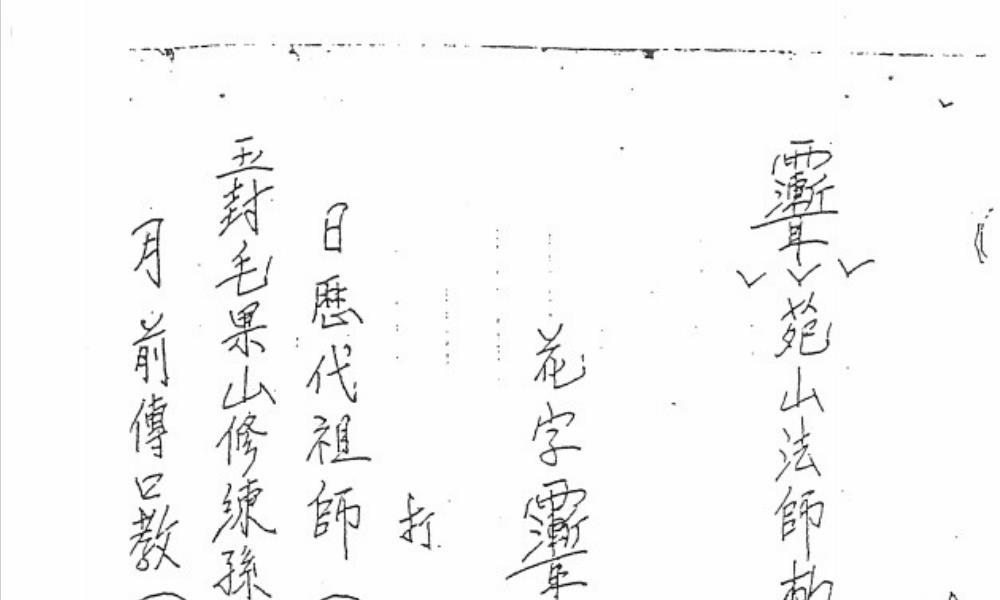 苑山法師
花字
打
日歷代祖師
玉封毛果山修練孫
月前傳口教